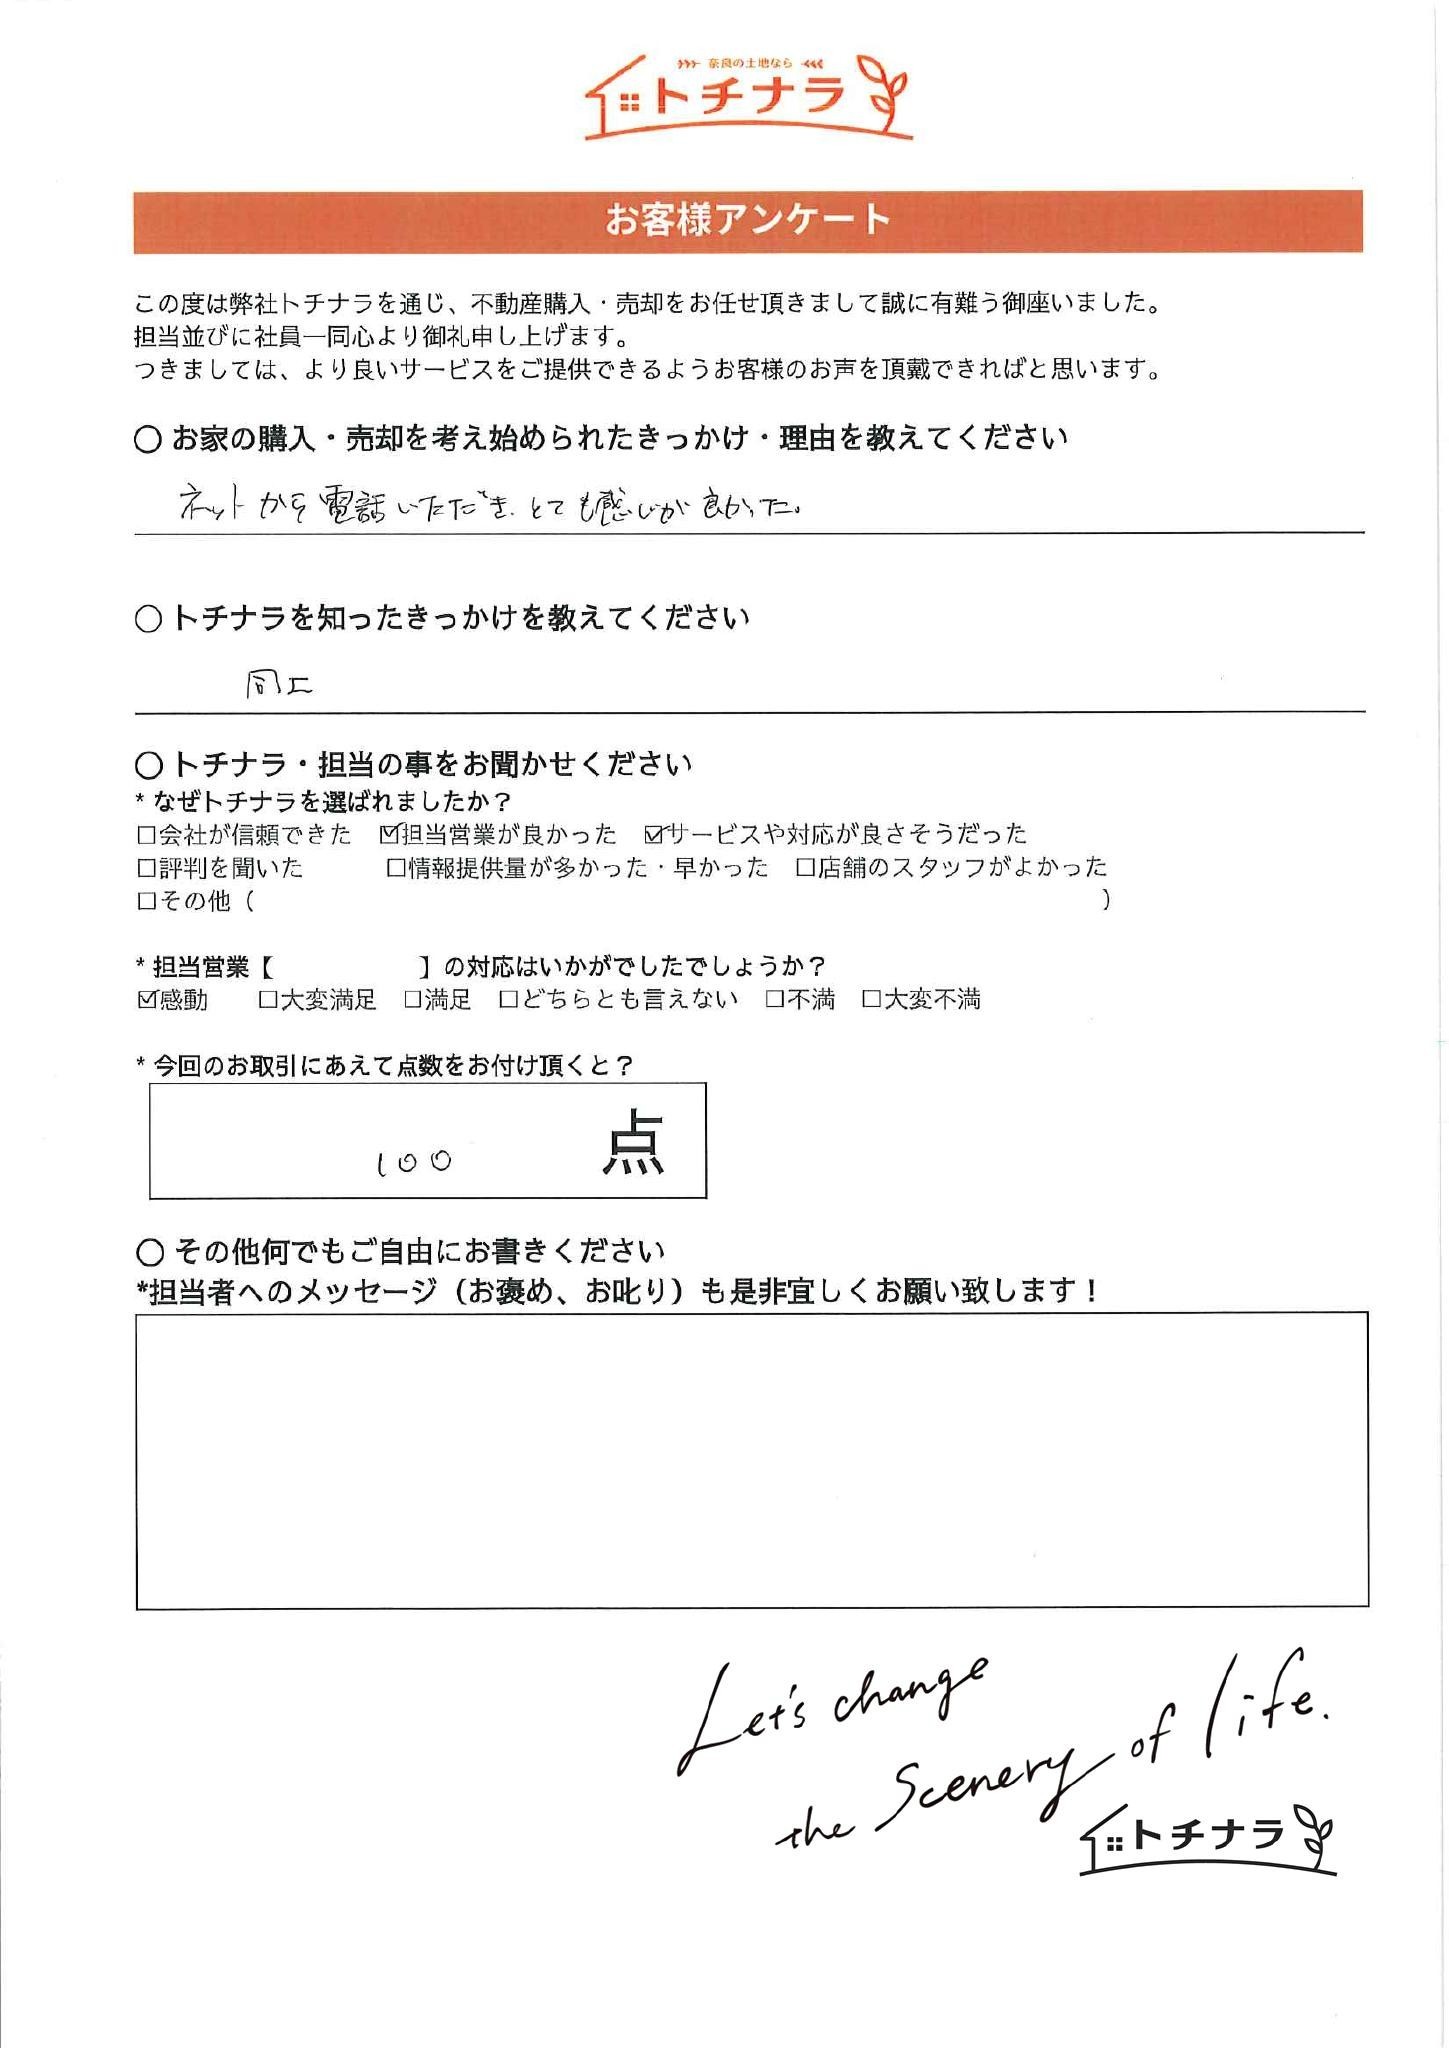 奈良の土地なら
トチナラ
お客様アンケート
この度は弊社トチナラを通じ、不動産購入・売却をお任せ頂きまして誠に有難う御座いました。
担当並びに社員一同心より御礼申し上げます。
つきましては、より良いサービスをご提供できるようお客様のお声を頂戴できればと思います。
○ お家の購入・売却を考え始められたきっかけ・理由を教えてください
ネットから電話いただき、とても感じが良かった。
○ トチナラを知ったきっかけを教えてください
同上
○ トチナラ・担当の事をお聞かせください
* なぜトチナラを選ばれましたか？
□会社が信頼できた ☑担当営業が良かった ☑サービスや対応が良さそうだった
□評判を聞いた □情報提供量が多かった・早かった □店舗のスタッフがよかった
□その他（ ）
* 担当営業【 】の対応はいかがでしたでしょうか？
☑感動 □大変満足 □満足 □どちらとも言えない □不満 □大変不満
* 今回のお取引にあえて点数をお付け頂くと？
100 点
○ その他何でもご自由にお書きください
*担当者へのメッセージ（お褒め、お叱り）も是非宜しくお願い致します！
Let's change
the Scenery of life.
トチナラ